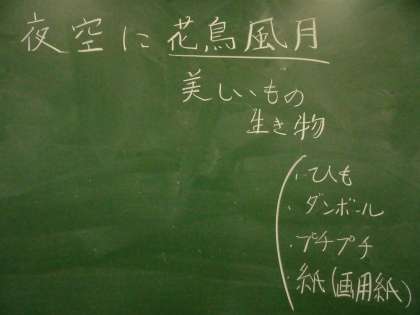 夜空に花鳥風月
美しいもの
生き物
・ひも
・ダンボール
・プチプチ
・紙(画用紙)